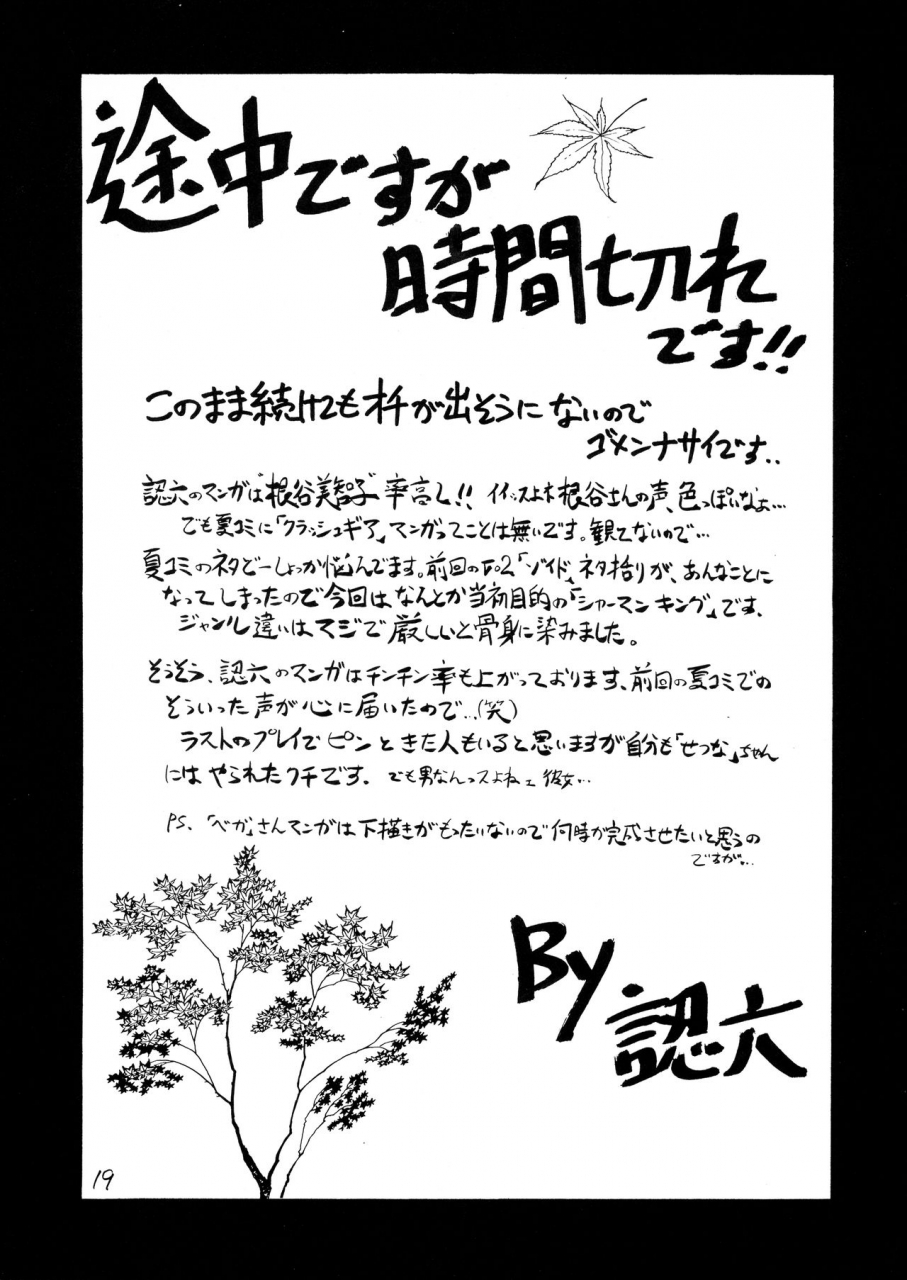 途中ですが
時間切れ
です!!
このまま続けても オチが出そうにないので
ゴメンナサイです..
認六のマンガは"根谷美智子"率高し!! イイッスよネ根谷さんの声、色っぽいなぁ…
でも夏コミに「クラッシュギア」マンガってことは無いです。観てないので…
夏コミのネタどーしょっか悩んでます。前回の「ゾイド」ネタ括りが、あんなことに
なってしまったので今回はなんとか当初目的の「シャーマンキング」です、
ジャンル違いはマジで厳しいと骨身に染みました。
そうそう、認六のマンガはチンチン率も上がっております、前回の夏コミでの
そういった声が心に届いたので…(笑)
ラストのプレイで ピン ときた人もいると思いますが自分も「せつな」ちゃん
にはやられたクチです. でも男なんっスよね 彼女…
PS、「ベガ」さんマンガは下描きがもったいないので何時か完成させたいと思うの
ですが…
By
認六
19